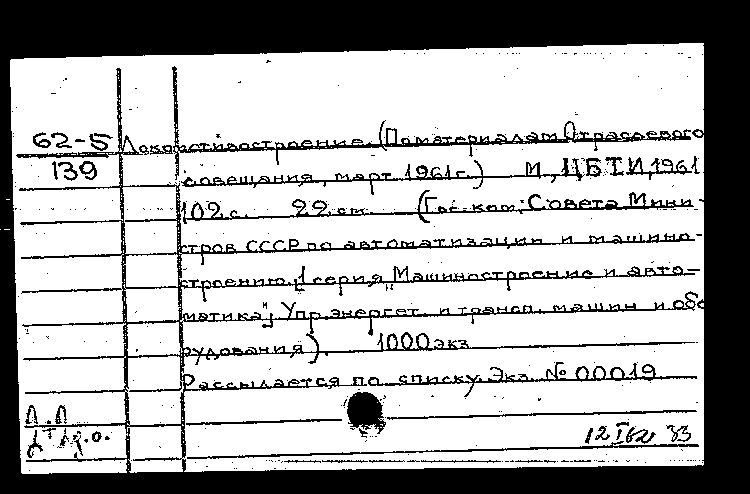 62-5 Локомотивостроение. (По материалам Отраслевого
139 совещания, март 1961г.) М., ЦБТИ, 1961
102 с. 22 см. (Гос. ком. Совета Мини-
стров СССР по автоматизации и машино-
строению. 1 серия „Машиностроение и авто-
матика"; Упр. энергет. и трансп. машин и обо
рудования). 1000 экз
Рассылается по списку. Экз. № 00019
12 I 62 33